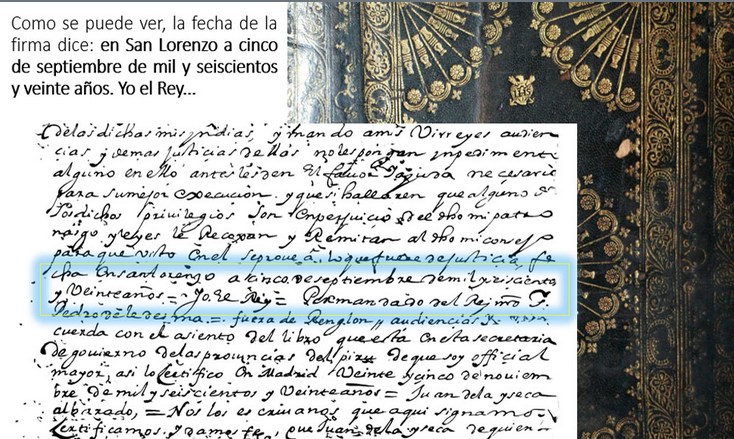 Como se puede ver, la fecha de la
firma dice: en San Lorenzo a cinco
de septiembre de mil y seiscientos
y veinte años. Yo el Rey...
delas dichas mis yndias, y mando amis Virreyes audien
cias y demas justicias de llas no les pongan ynpediment
alguno en ello antes les den El favor y ayuda ne cesario
para su mejor execucion, y que si hallaren que alguno
dichos privilegios son en perjuicio del dho mi patro
nazgo y leyes le Recoxan y Remitan al dho mi consejo
para que visto en el se provea lo que fuere de justicia, fe
cha en san lorenzo a cinco de septiembre de mil y seiscientos
y Veinte años = Yo el Rey = Por mandado del Rey nro S.
Pedro de ledesma = fuera de Renglon y audiencias
cuerda con el asiento del libro que esta en esta secretaria
de govierno delas provincias del piru de que soy official
mayor, asi lo certifico en Madrid Veinte y cinco de noviem
bre de mil y seiscientos y Veinte años = Juan dela yseca
albarado, = Nos los es crivanos que aqui signamos
certificamos y damos fe, que Juan dela yseca de quien
IHS